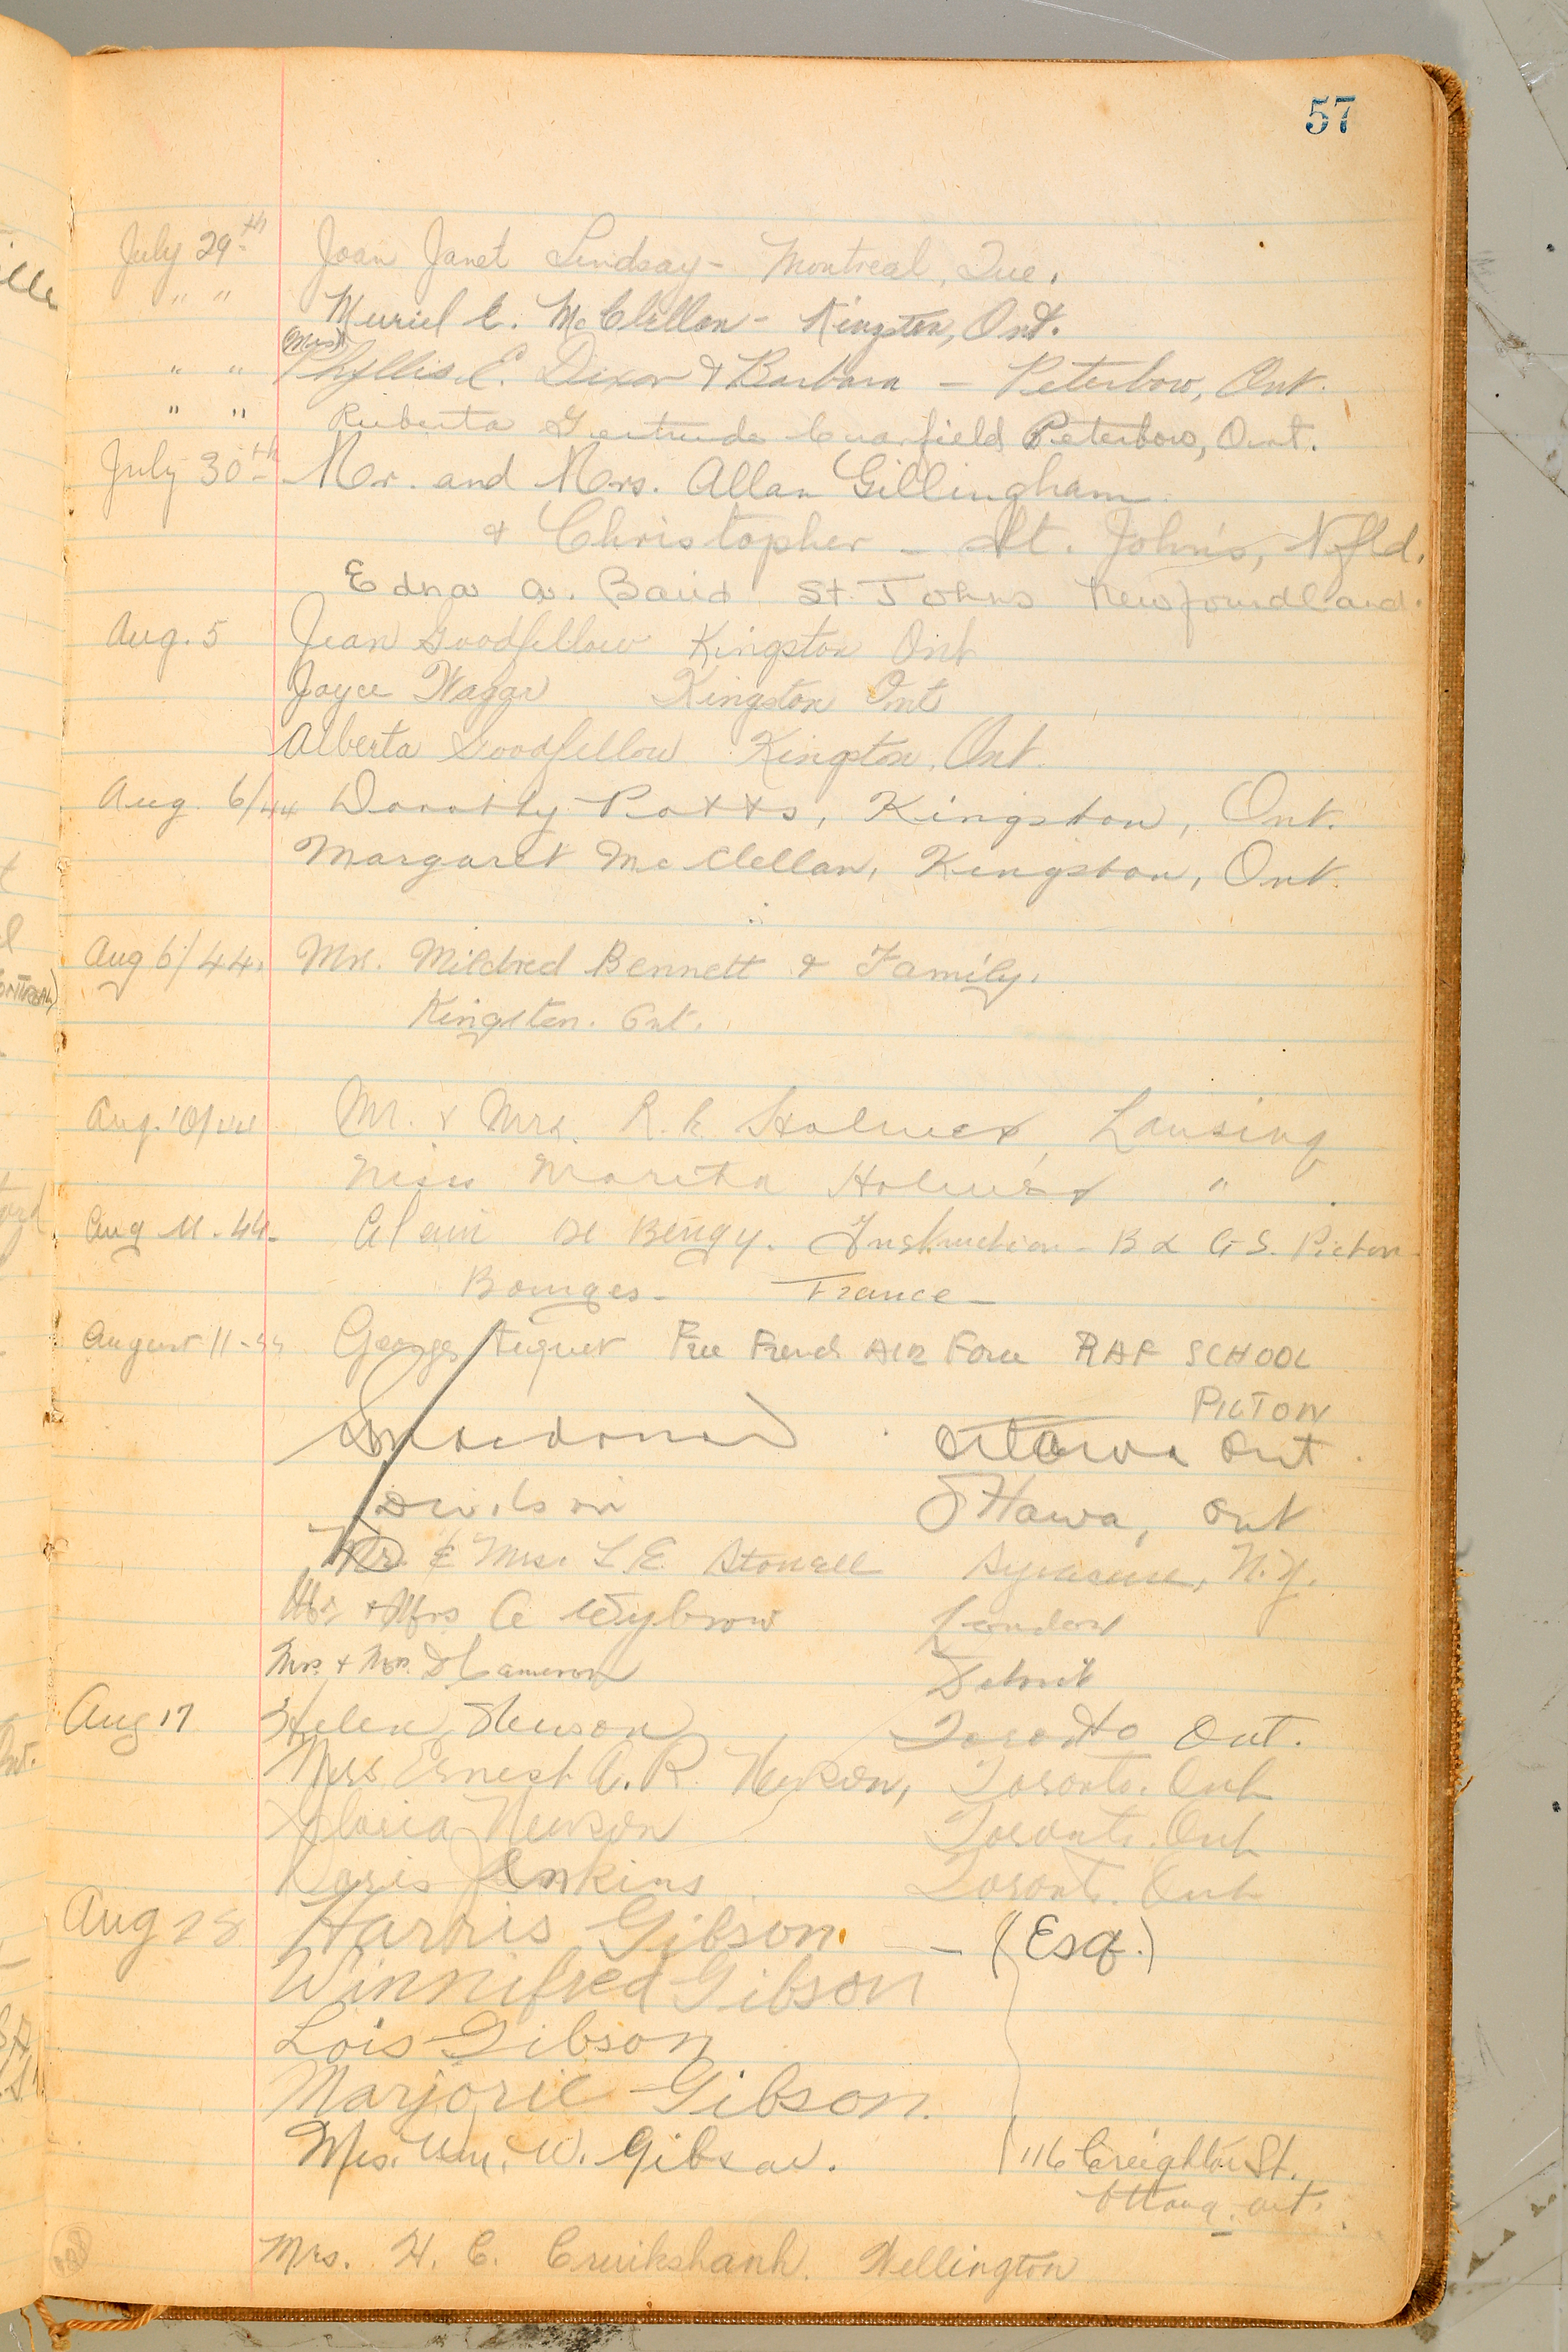 57
July 29th Joan Janet Lindsay - Montreal, Que.
" " Muriel E. McClellan - Kingston, Ont.
" " (Mrs) Phyllis E. Dixon & Barbara - Peterboro, Ont.
" " Gertrude Peterboro, Ont.
July 30th Mr. and Mrs. Allan Gillingham
& Christopher - St. John's, Nfld.
Edna A. Baird St. Johns Newfoundland.
Aug. 5 Jean Goodfellow Kingston Ont
Joyce Wagar Kingston Ont
Alberta Goodfellow Kingston, Ont.
Aug. 6/44 Dorothy Potts, Kingston, Ont.
Margaret McClellan, Kingston, Ont.
Aug 6/44. Mrs. Mildred Bennett & Family.
Kingston. Ont.
Aug. 10/44 Mr. & Mrs. R. E. Holmes, Lansing
Miss Marita Holmes "
Aug 11-44- Alain de Bengy. Instruction - B & G S. Picton -
Bourges - France -
August 11-44 Georges Free French AIR Force RAF SCHOOL
PICTON
Macdonald Ottawa Ont.
D Wilson Ottawa, Ont
Mr. & Mrs. L E. Stowell Syracuse, N.Y.
Mr & Mrs A Wybrow London
Mrs. & Mr. D Cameron Detroit
Aug 17 Helen Newson Toronto Ont.
Mrs Ernest A. R. Newson, Toronto. Ont
Gloria Newson Toronto. Ont
Doris Jenkins Toronto. Ont
Aug 28 Harris Gibson. - (Esq.)
Winnifred Gibson
Lois Gibson
Marjorie Gibson.
Mrs. Wm. W. Gibson. 116 Creighton St.
Ottawa. Ont.
Mrs. H. C. Cruikshank. Wellington